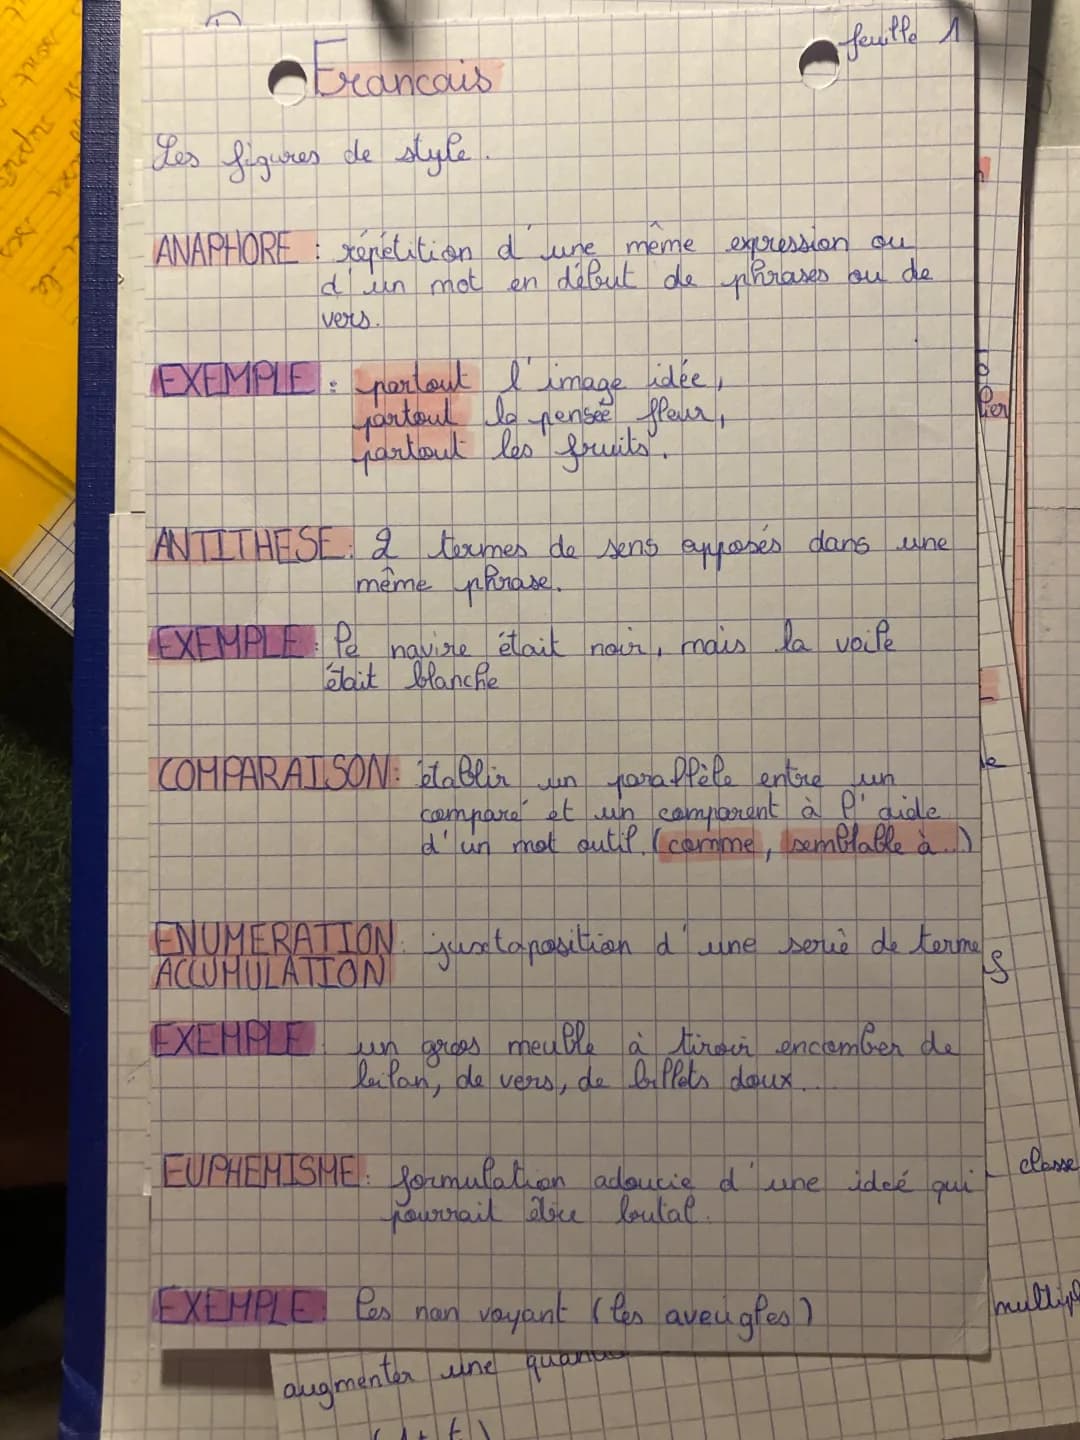 feuille 1
Francais
Les figures de style.
ANAPHORE : répétition d'une même expression ou
d'un mot en début de phrases ou de
vers.
EXEMPLE : partout l'image idée,
partout la pensée fleur,
partout les fruits.
ANTITHESE : 2 termes de sens opposés dans une
même phrase.
EXEMPLE : le navire était noir, mais la voile
était blanche
COMPARAISON : établir un parallèle entre un
comparé et un comparant à l'aide
d'un mot outil. (comme, semblable à ..)
ENUMERATION : juxtaposition d'une serié de termes
ACCUMULATION
EXEMPLE : un gros meuble à tiroir encomber de
bilan, de vers, de billets doux...
EUPHEMISME : formulation adoucie d'une ideé qui
pourrait être brutal.
EXEMPLE : les non voyant (les aveugles)
classe
augmenter une